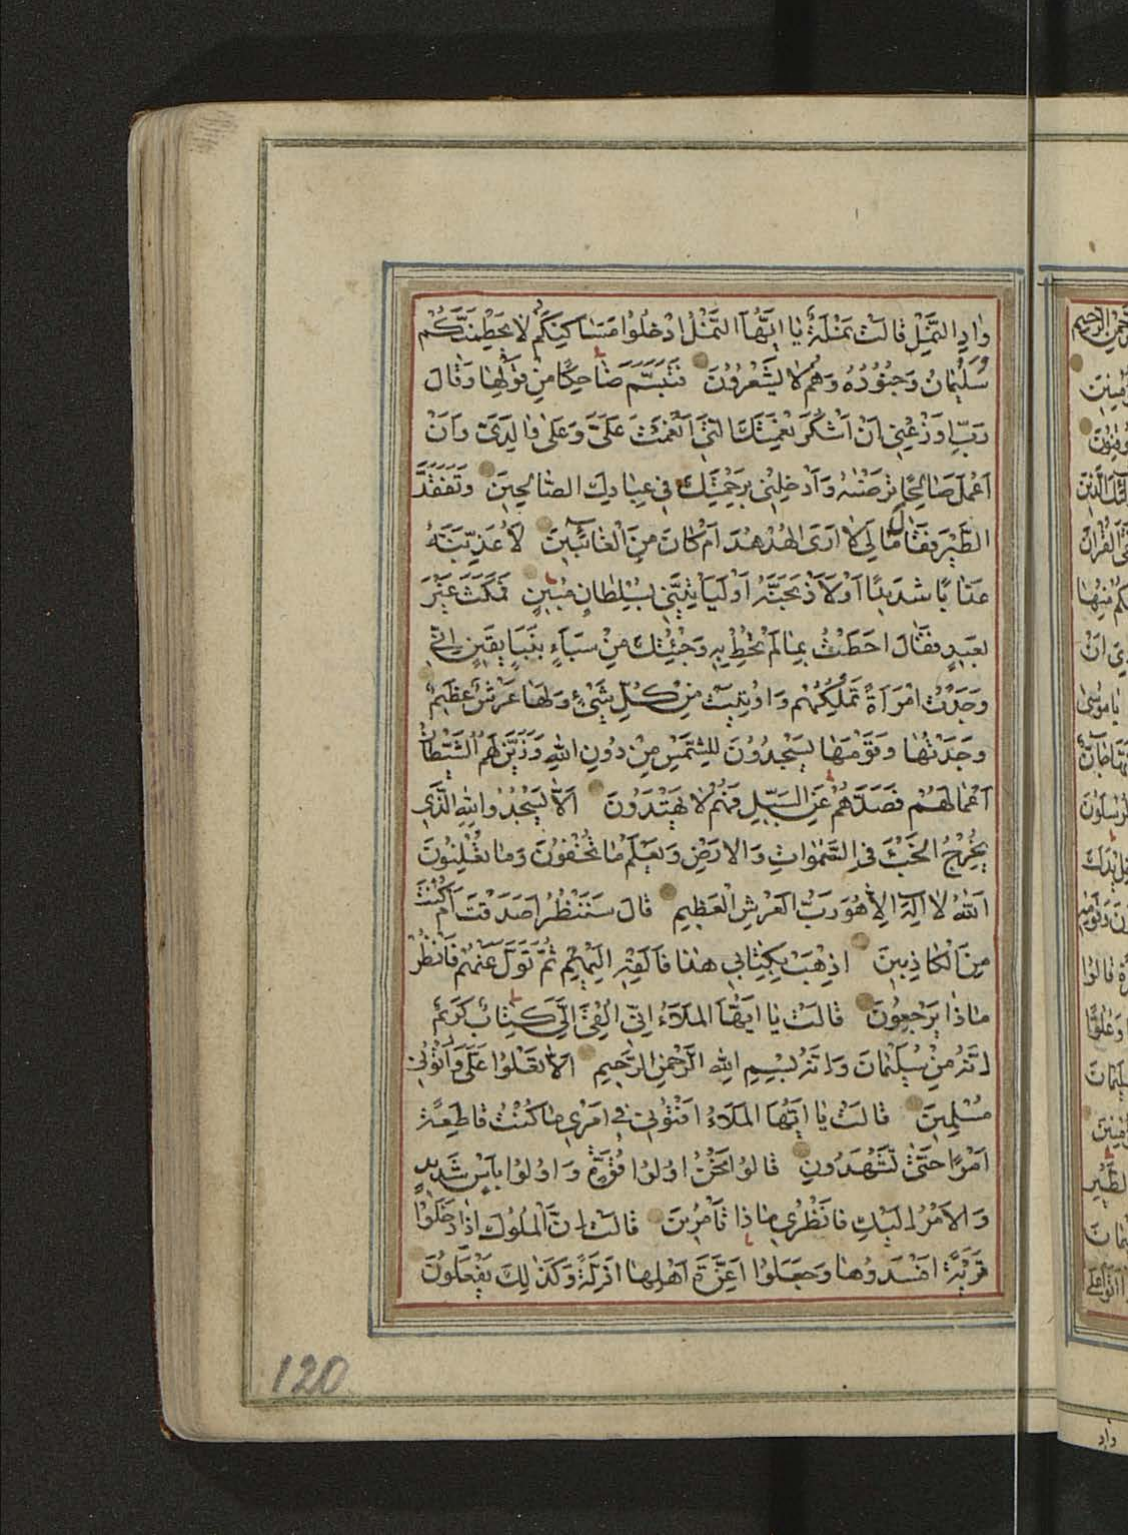 وَادِ النَّمْلِ قَالَتْ نَمْلَةٌ يَا اَيُّهَا النَّمْلُ ادْخُلُوا مَسَاكِنَكُمْ لَا يَحْطِمَنَّكُمْ
سُلَيْمَانُ وَجُنُوْدُهُ وَهُمْ لَا يَشْعُرُوْنَ فَتَبَسَّمَ ضَاحِكًا مِنْ قَوْلِهَا وَقَالَ
رَبِّ اَوْزِعْنِي اَنْ اَشْكُرَ نِعْمَتَكَ الَّتِيْ اَنْعَمْتَ عَلَيَّ وَعَلَى وَالِدَيَّ وَاَنْ
اَعْمَلَ صَالِحًا تَرْضٰيهُ وَاَدْخِلْنِيْ بِرَحْمَتِكَ فِي عِبَادِكَ الصَّالِحِيْنَ وَتَفَقَّدَ
الطَّيْرَ فَقَالَ مَا لِيَ لَا اَرَى الْهُدْهُدَ اَمْ كَانَ مِنَ الْغَائِبِيْنَ لَاُعَذِّبَنَّهُ
عَذَابًا شَدِيْدًا اَوْ لَاَذْبَحَنَّهُ اَوْ لَيَاْتِيَنِّيْ بِسُلْطَانٍ مُبِيْنٍ فَمَكَثَ غَيْرَ
بَعِيْدٍ فَقَالَ اَحَطْتُ بِمَا لَمْ تُحِطْ بِهِ وَجِئْتُكَ مِنْ سَبَاٍ بِنَبَاٍ يَقِيْنٍ اِنِّيْ
وَجَدْتُ امْرَاَةً تَمْلِكُهُمْ وَاُوْتِيَتْ مِنْ كُلِّ شَيْءٍ وَلَهَا عَرْشٌ عَظِيْمٌ
وَجَدْتُهَا وَقَوْمَهَا يَسْجُدُوْنَ لِلشَّمْسِ مِنْ دُوْنِ اللهِ وَزَيَّنَ لَهُمُ الشَّيْطَانُ
اَعْمَالَهُمْ فَصَدَّهُمْ عَنِ السَّبِيْلِ فَهُمْ لَا يَهْتَدُوْنَ اَلَّا يَسْجُدُوا لِلّٰهِ الَّذِي
يُخْرِجُ الْخَبْءَ فِي السَّمٰوَاتِ وَالْاَرْضِ وَيَعْلَمُ مَا تُخْفُوْنَ وَمَا تُعْلِنُوْنَ
اَللهُ لَا اِلٰهَ اِلَّا هُوَ رَبُّ الْعَرْشِ الْعَظِيْمِ قَالَ سَنَنْظُرُ اَصَدَقْتَ اَمْ كُنْتَ
مِنَ الْكَاذِبِيْنَ اِذْهَبْ بِكِتَابِيْ هٰذَا فَاَلْقِهْ اِلَيْهِمْ ثُمَّ تَوَلَّ عَنْهُمْ فَانْظُرْ
مَاذَا يَرْجِعُوْنَ قَالَتْ يَا اَيُّهَا الْمَلَاُ اِنِّيْ اُلْقِيَ اِلَيَّ كِتَابٌ كَرِيْمٌ
اِنَّهُ مِنْ سُلَيْمَانَ وَاِنَّهُ بِسْمِ اللهِ الرَّحْمٰنِ الرَّحِيْمِ اَلَّا تَعْلُوا عَلَيَّ وَاْتُوْنِيْ
مُسْلِمِيْنَ قَالَتْ يَا اَيُّهَا الْمَلَاُ اَفْتُوْنِي فِيْ اَمْرِي مَا كُنْتُ قَاطِعَةً
اَمْرًا حَتّٰى تَشْهَدُوْنِ قَالُوْا نَحْنُ اُولُوا قُوَّةٍ وَاُولُوا بَاْسٍ شَدِيْدٍ
وَالْاَمْرُ اِلَيْكِ فَانْظُرِيْ مَاذَا تَاْمُرِيْنَ قَالَتْ اِنَّ الْمُلُوْكَ اِذَا دَخَلُوْا
قَرْيَةً اَفْسَدُوْهَا وَجَعَلُوْا اَعِزَّةَ اَهْلِهَا اَذِلَّةً وَكَذٰلِكَ يَفْعَلُوْنَ
120